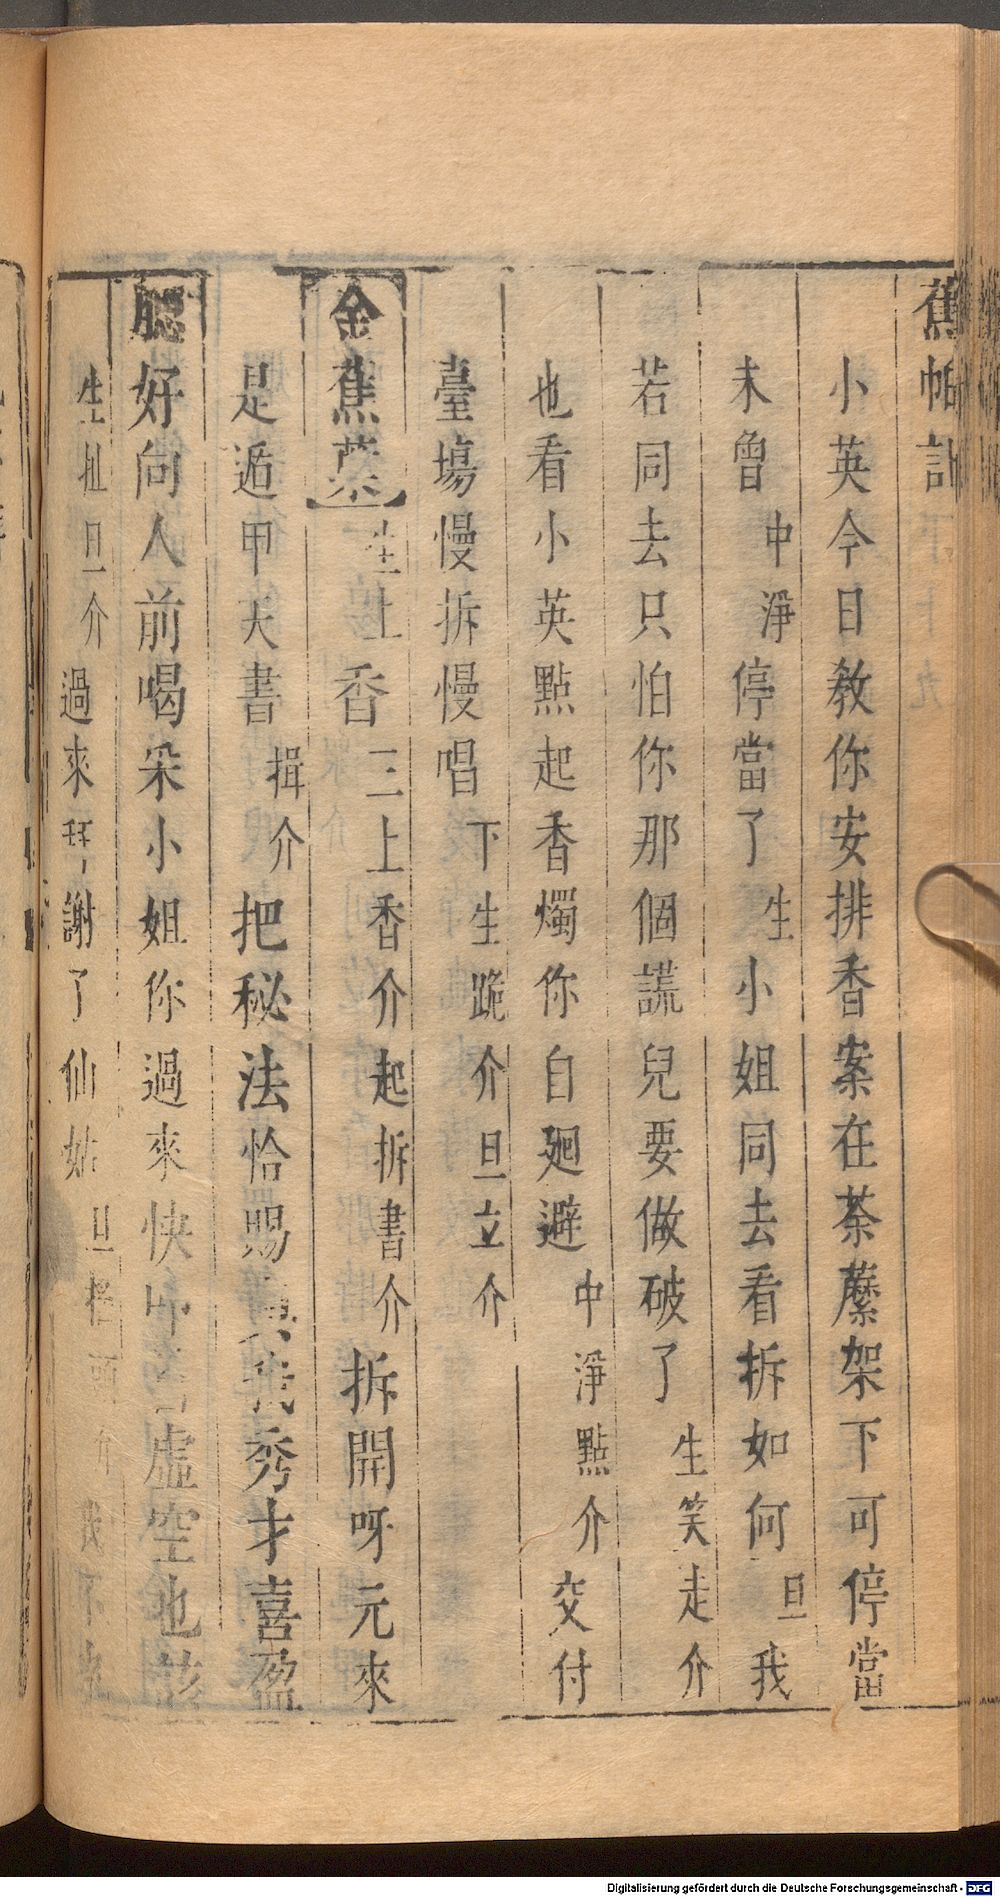 蕉帕記
小英今日敎你安排香案在荼蘼架下可停當
未曾中淨停當了生小姐同去看拆如何旦我
若同去只怕你那個謊兒要做破了生笑走介
也看小英點起香燭你自廻避中淨點介交付
臺塲慢拆慢唱下生跪介旦立介
金蕉葉生上香三上香介起拆書介拆開呀元來
是遁甲天書揖介把秘法恰賜我秀才喜盈
腮好向人前喝采小姐你過來快虛空也該
生扯旦介過來拜謝了仙姑旦搖頭介我不
Digitalisierung gefördert durch die Deutsche Forschungsgemeinschaft - DFG